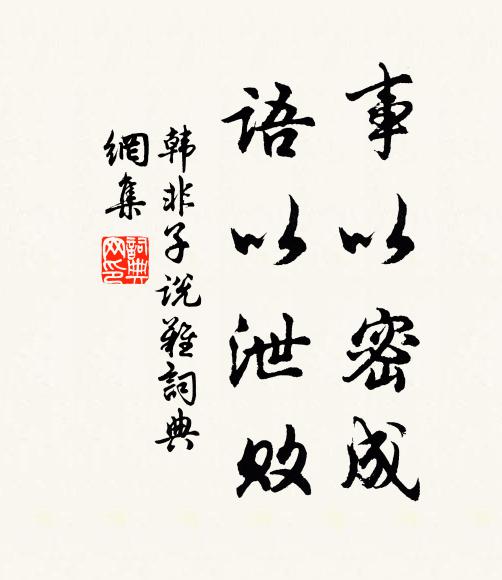 事以密成
语以泄败
韩非子说难词典
网集
词典网印